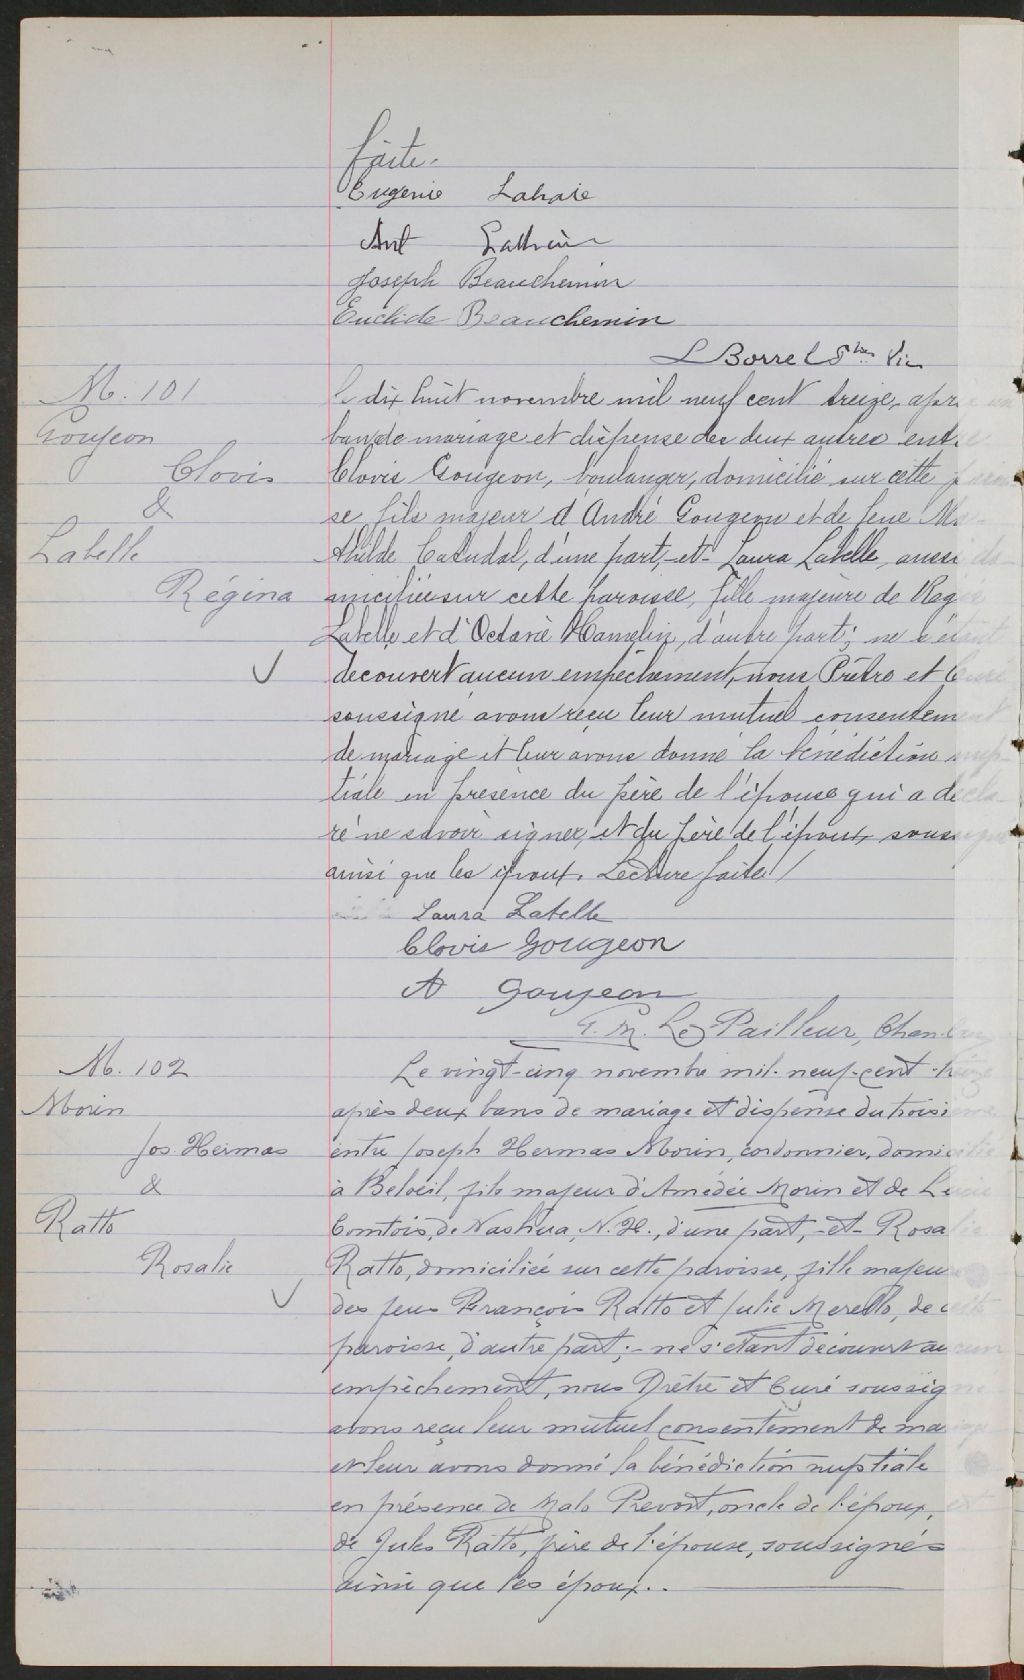 faite.
Eugenie Lahaie
Ant
Joseph Beauchemin
Euclide Beauchemin
L Borrel Ptre Vic
M. 101
Goujeon
Clovis
&
Labelle
Régina
le dix huit novembre mil neuf cent treize, après un
ban de mariage et dispense des deux autres entre
Clovis Gougeon, boulanger, domicilié sur cette parois
se fils majeur d'André Gougeon et de feue Ma
thilde Catudal, d'une part, -et- Laura Labelle, aussi do
miciliée sur cette paroisse, fille majeure de
Labelle et d'Octavie Hamelin, d'autre part; ne s'étant
decouvert aucun empêchement, nous Prêtre et Curé
soussigné avons reçu leur mutuel consentement
de mariage et leur avons donné la bénédiction nup-
tiale en présence du père de l'épouse qui a décla
ré ne savoir signer, et du père de l'époux soussigné
ainsi que les époux. Lecture faite /
Laura Labelle
Clovis Gougeon
A Goujeon
G. M. Le Pailleur, Chan. Curé
M. 102
Morin
Jos. Hermas
&
Ratto
Rosalie
Le vingt-cinq novembre mil-neuf-cent-treize
après deux bans de mariage et dispense du troisième
entre Joseph Hermas Morin, cordonnier, domicilié
à Beloeil, fils majeur d'Amédée Morin et de Lucie
Comtois, de Nashua, N.H., d'une part, -et- Rosalie
Ratto, domiciliée sur cette paroisse, fille majeure
des feus François Ratto et Julie Merello, de cette
paroisse, d'autre part; - ne s'étant découvert aucun
empêchement, nous Prêtre et Curé soussigné
avons reçu leur mutuel consentement de mariage
et leur avons donné la bénédiction nuptiale
en présence de Malo Prevost, oncle de l'époux, et
de Jules Ratto, frère de l'épouse, soussignés
ainsi que les époux..